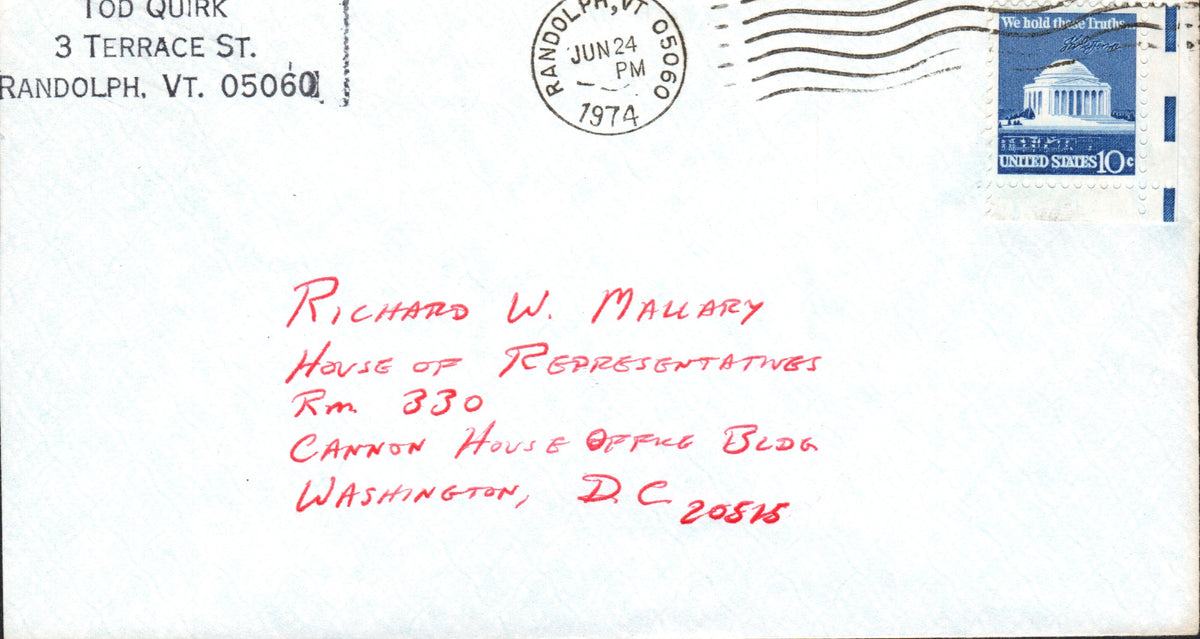 TOD QUIRK
3 TERRACE ST.
RANDOLPH, VT. 05060
RANDOLPH, VT 05060
JUN 24
PM
1974
We hold these Truths
UNITED STATES 10c
RICHARD W. MALLARY
HOUSE OF REPRESENTATIVES
Rm. 330
CANNON HOUSE OFFICE BLDG
WASHINGTON, D.C
20515